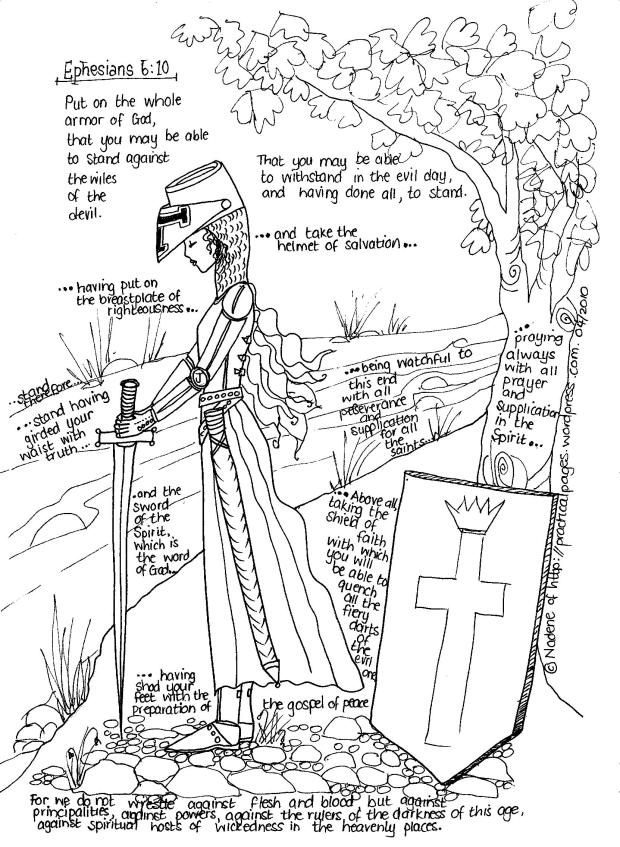 Ephesians 6:10
Put on the whole
armor of God,
that you may be able
to stand against
the wiles
of the
devil.
That you may be able
to withstand in the evil day,
and having done all, to stand.
... and take the
helmet of salvation...
... having put on
the breastplate of
righteousness...
...stand
therefore...
... stand having
girded your
waist with
truth...
...being watchful to
this end
with all
perseverance
and
supplication
for all
the
saints...
...praying
always
with all
prayer
and
supplication
in the
Spirit...
...and the
sword
of the
Spirit,
which is
the word
of God...
...Above all,
taking the
shield of
faith
with which
you will
be able to
quench
all the
fiery
darts
of
the
evil
one
... having
shod your
feet with the
preparation of
the gospel of peace
For we do not wrestle against flesh and blood, but against
principalities, against powers, against the rulers, of the darkness of this age,
against spiritual hosts of wickedness in the heavenly places.
© Nadene of http://practicalpages.wordpress.com. 04/2010